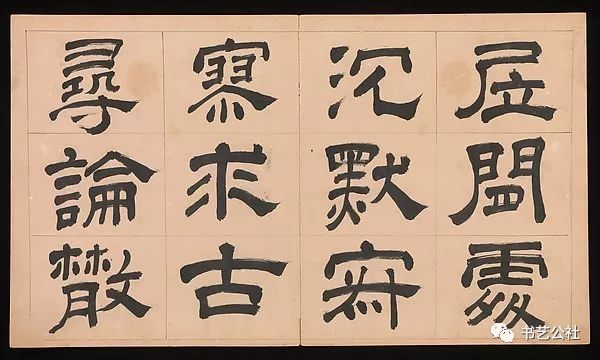 居閒處
沉默寂
寥求古
尋論散
书艺公社